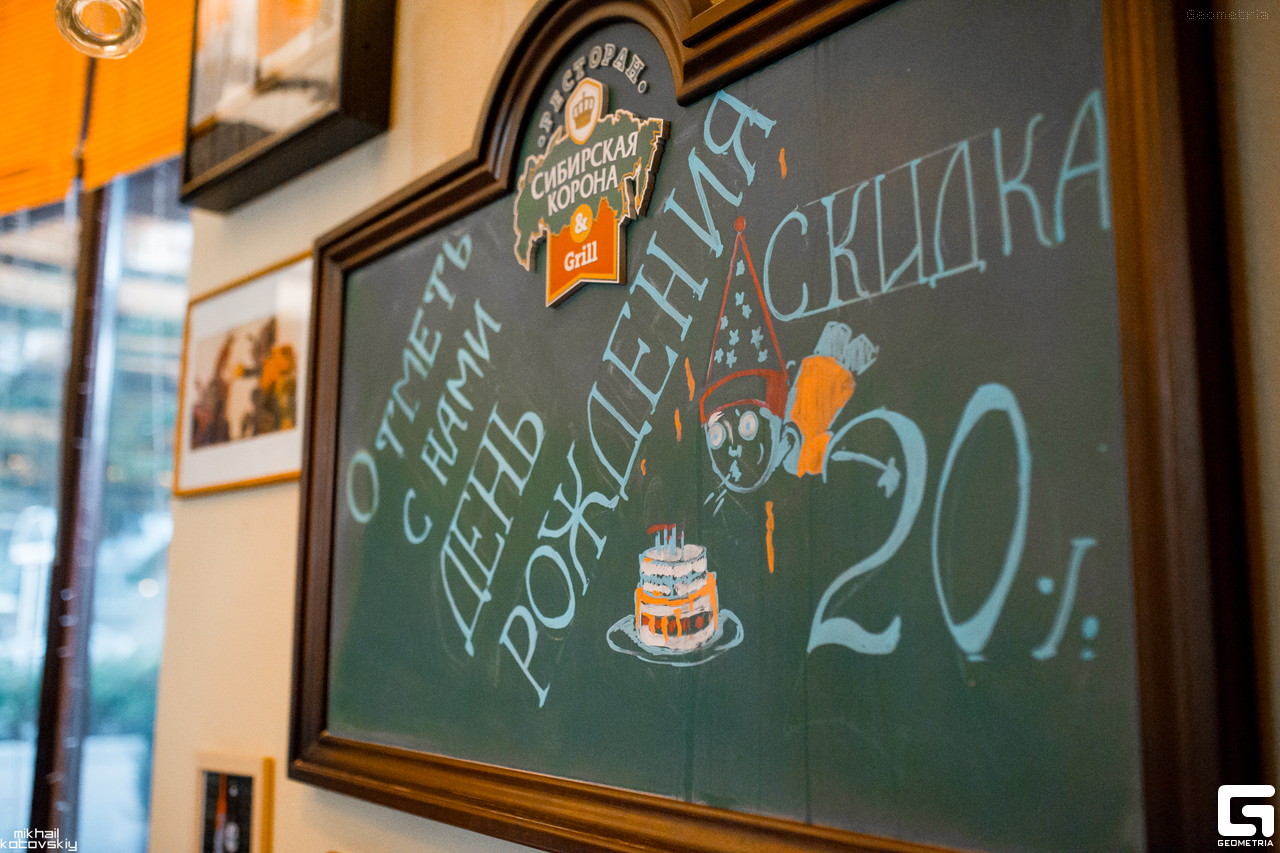 Geometria
РЕСТОРАН
СИБИРСКАЯ
КОРОНА
&
Grill
ОТМЕТЬ
С НАМИ
ДЕНЬ
РОЖДЕНИЯ
СКИДКА
20%
mikhail
kotovskiy
G
GEOMETRIA